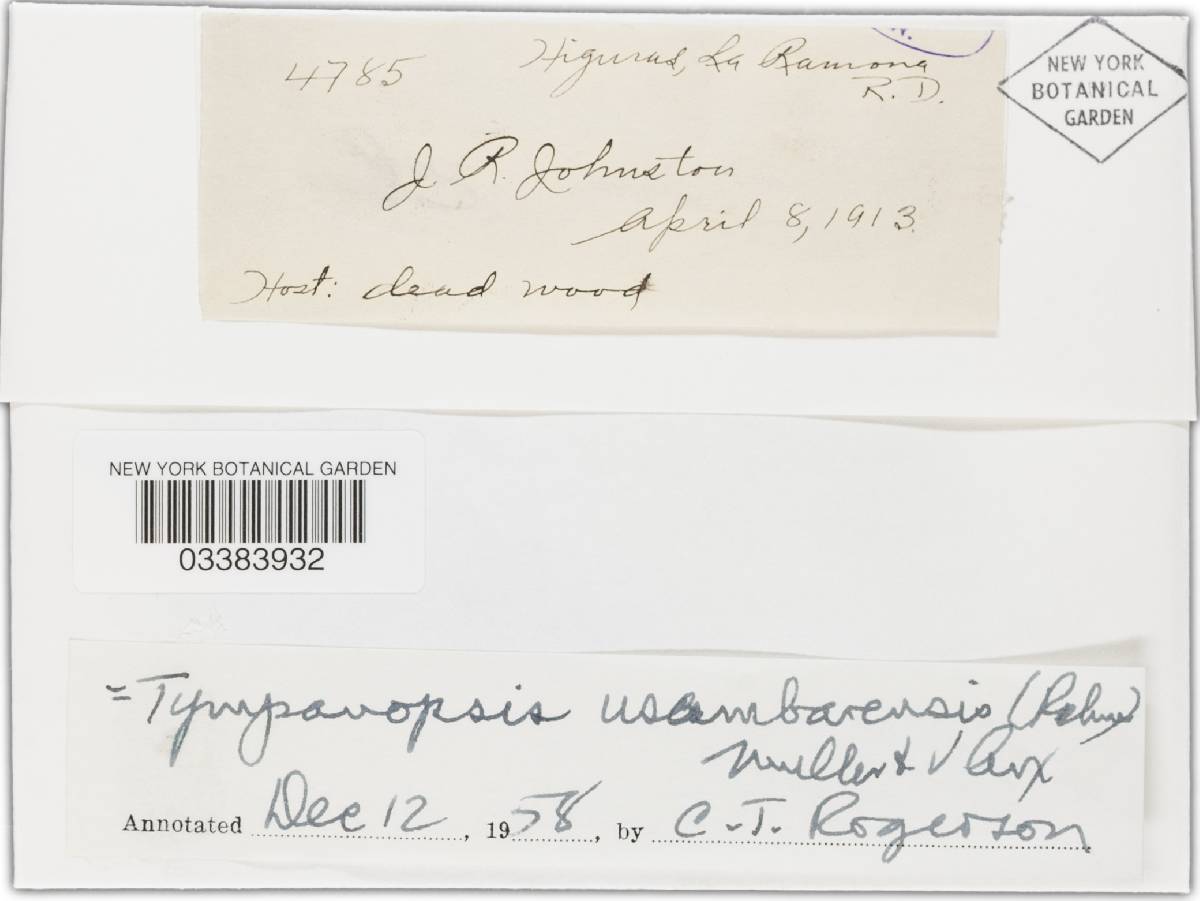 4785 Higuras, La Ramona
R. D.
NEW YORK
BOTANICAL
GARDEN
J R. Johnston
April 8, 1913.
Host: dead wood
NEW YORK BOTANICAL GARDEN
03383932
= Tympanopsis usambarensis (Rehm)
Muller & V Arx
Annotated Dec 12, 1958, by C. T. Rogerson